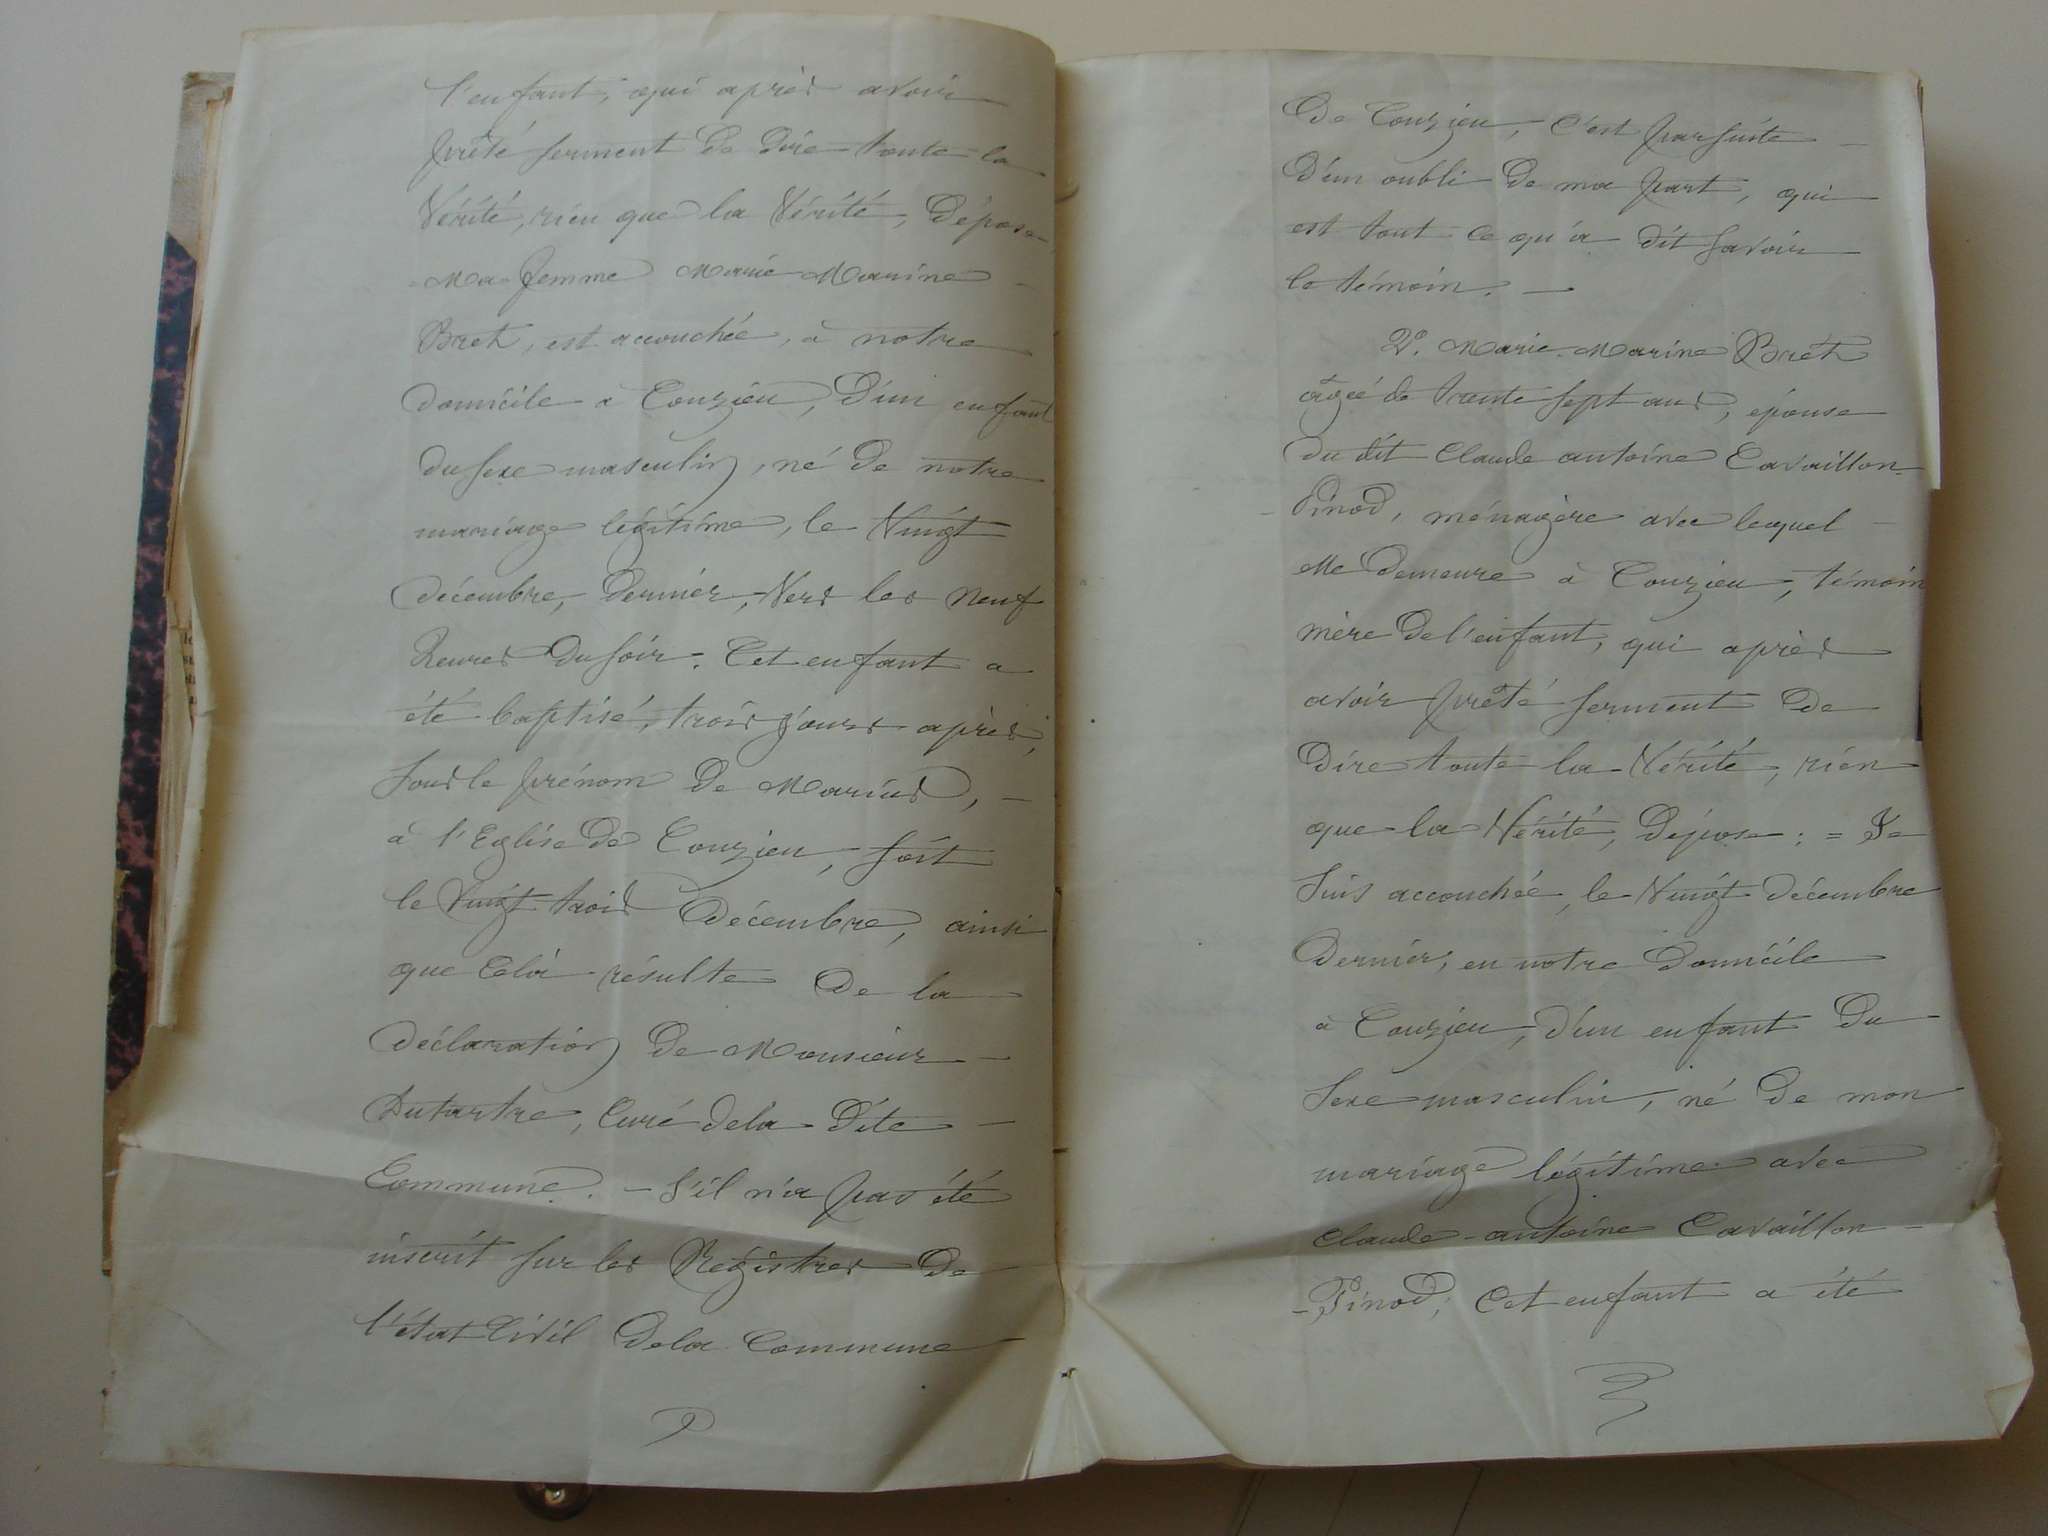 l'enfant, qui après avoir
prêté serment de dire toute la
Vérité, rien que la Vérité, Dépose
Ma femme Marie Marine
Bret, est accouchée, à notre
domicile à Couzieu, D'un enfant
du sexe masculin, né De notre
mariage légitime, le Vingt
décembre, Dernier, Vers les neuf
heures Du soir. Cet enfant a
été baptisé, trois jours après,
sous le prénom De Marius, —
à l'Eglise De Couzieu, soit
le Vingt trois Décembre, ainsi
que Cela résulte De la
Déclaration De Monsieur —
Dutartre, Curé Dela Dite —
Commune. — S'il n'a pas été
inscrit sur les Régistres De
l'état Civil Dela Commune
De Couzieu, C'est par suite —
D'un oubli De ma part, qui
est tout ce qu'a dit savoir
le témoin. —
2°. Marie Marine Bret
agée de trente sept ans, épouse
du dit Claude antoine Cavaillon-
-Pinod, ménagère avec lequel —
elle Demeure à Couzieu, témoin
mère De l'enfant, qui après
avoir prêté serment De
Dire toute la Vérité, rien
que la Vérité, Dépose : = Je
suis accouchée, le Vingt décembre
Dernier, en notre Domicile
à Couzieu, D'un enfant Du
sexe masculin, né De mon
mariage légitime avec
Claude-antoine Cavaillon-
-Pinod, Cet enfant a été